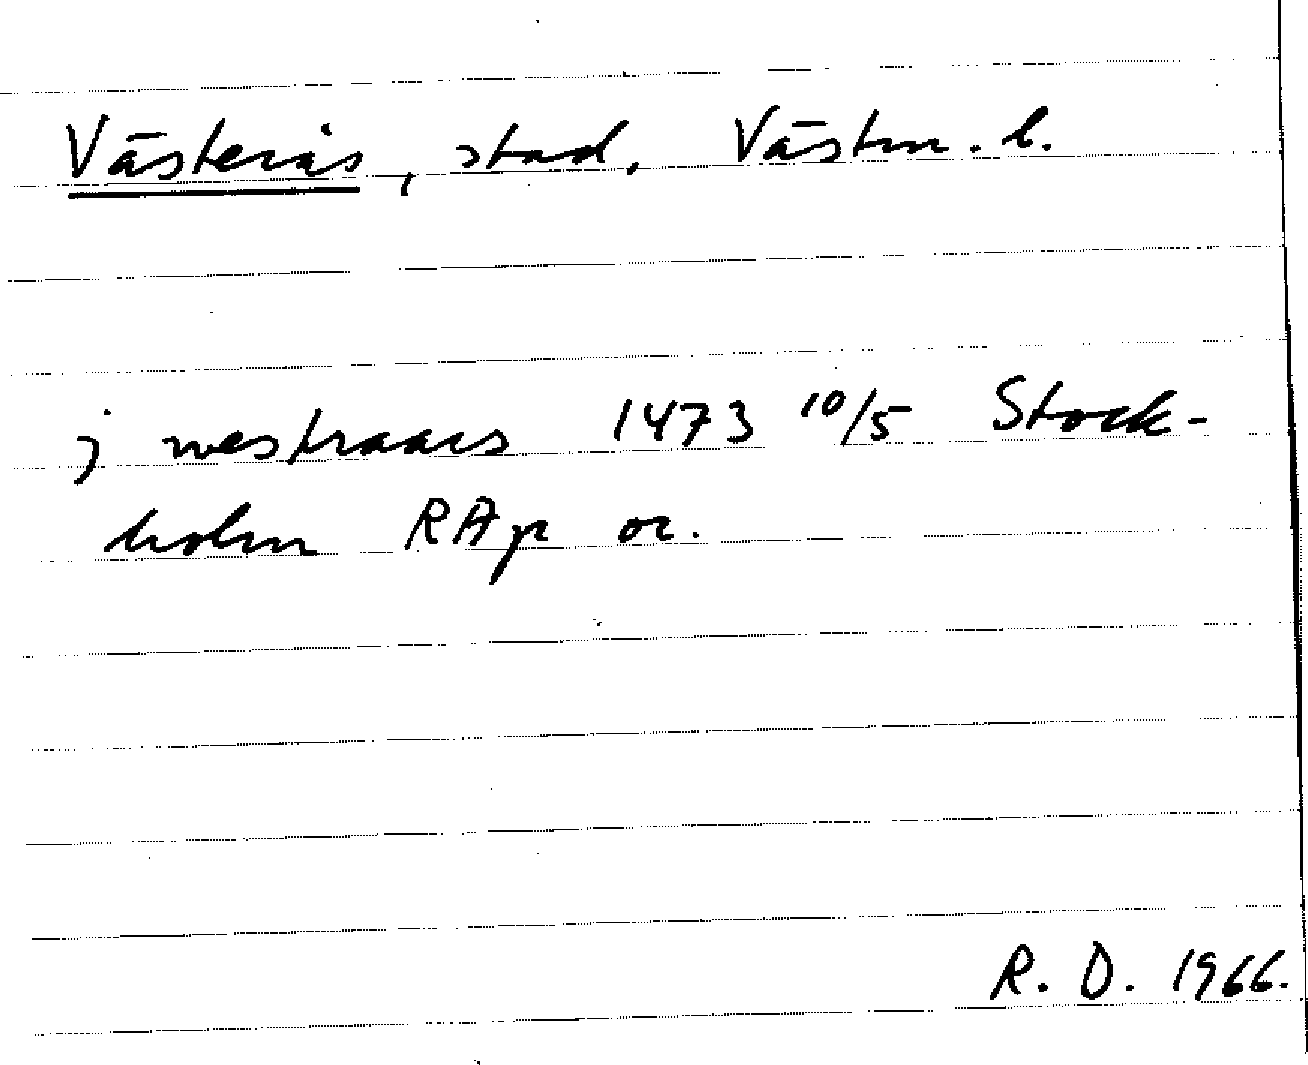 Västerås, stad, Västm. l.
j westraars 1473 10/5 Stock-
holm RAp or.
R. D. 1966.